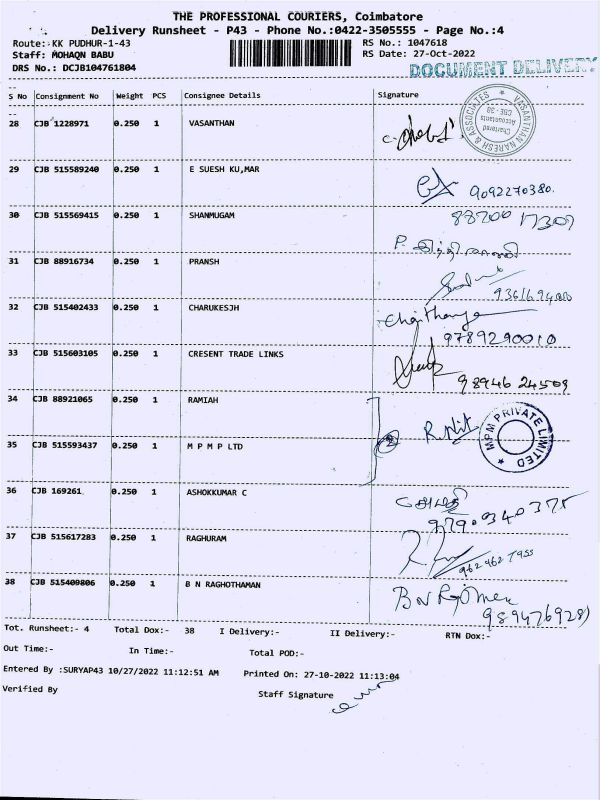 THE PROFESSIONAL COURIERS, Coimbatore
Delivery Runsheet - P43 - Phone No.:0422-3505555 - Page No.:4
Route:-KK PUDHUR-1-43 RS No.: 1047618
Staff: MOHAQN BABU RS Date: 27-Oct-2022
DRS No.: DCJB104761804 DOCUMENT DELIVERY
S No Consignment No Weight PCS Consignee Details Signature
28 CJB 1228971 0.250 1 VASANTHAN
VASANTHAN NARESH & ASSOCIATES ★ Chartered Accountants CBE - 38
29 CJB 515589240 0.250 1 E SUESH KU,MAR
9092270380.
30 CJB 515569415 0.250 1 SHANMUGAM 88700 17309
31 CJB 88916734 0.250 1 PRANSH
32 CJB 515402433 0.250 1 CHARUKESJH Chaithanya
9789290010
33 CJB 515603105 0.250 1 CRESENT TRADE LINKS
98946 24509
34 CJB 88921065 0.250 1 RAMIAH
MPM PRIVATE LIMITED ★
35 CJB 515593437 0.250 1 M P M P LTD 2
36 CJB 169261 0.250 1 ASHOKKUMAR C
37 CJB 515617283 0.250 1 RAGHURAM
962 462 7955
38 CJB 515409806 0.250 1 B N RAGHOTHAMAN
Tot. Runsheet:- 4 Total Dox:- 38 I Delivery:- II Delivery:- RTN Dox:-
Out Time:- In Time:- Total POD:-
Entered By :SURYAP43 10/27/2022 11:12:51 AM Printed On: 27-10-2022 11:13:04
Verified By Staff Signature